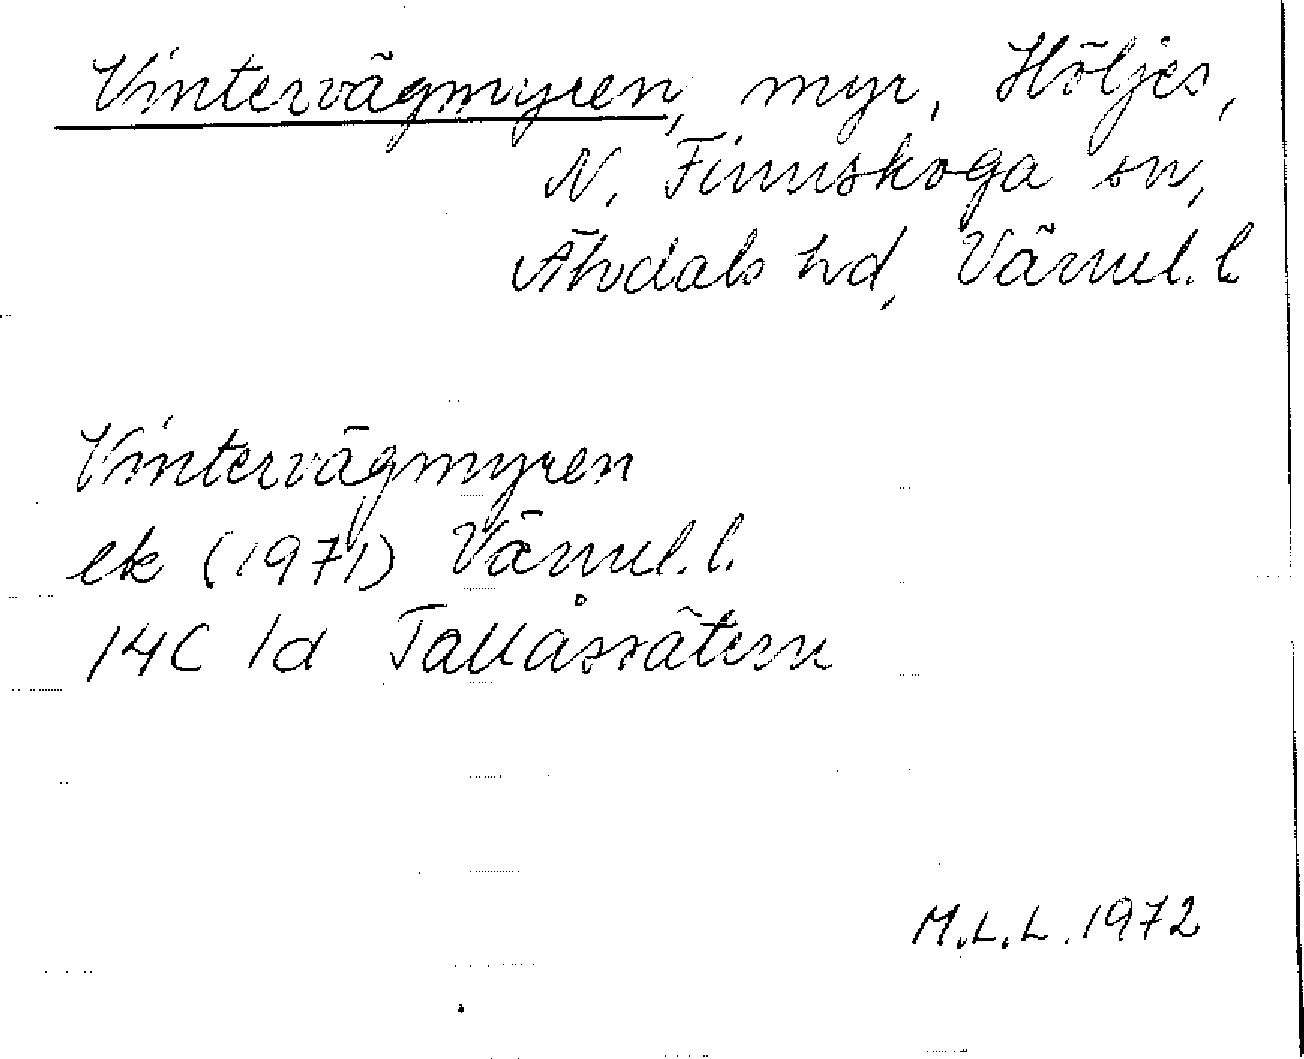 Vintervägmyren, myr, Höljes,
N. Finnskoga sn,
Älvdals hd, Värml. l.
Vintervägmyren
ek (1971) Värml. l.
14C 1d Tallåssätern
M.L.L. 1972